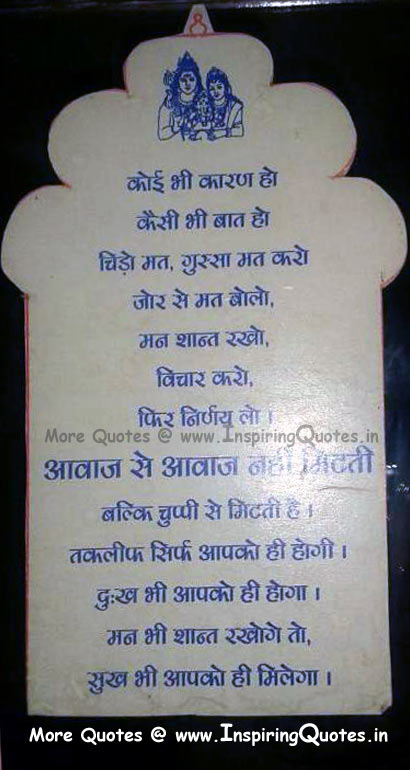 कोई भी कारण हो
कैसी भी बात हो
चिड़ो मत, गुस्सा मत करो
जोर से मत बोलो,
मन शान्त रखो,
विचार करो,
फिर निर्णय लो ।
More Quotes @ www.InspiringQuotes.in
आवाज से आवाज नहीं मिटती
बल्कि चुप्पी से मिटती है ।
तकलीफ सिर्फ आपको ही होगी ।
दुःख भी आपको ही होगा ।
मन भी शान्त रखोगे तो,
सुख भी आपको ही मिलेगा ।
More Quotes @ www.InspiringQuotes.in